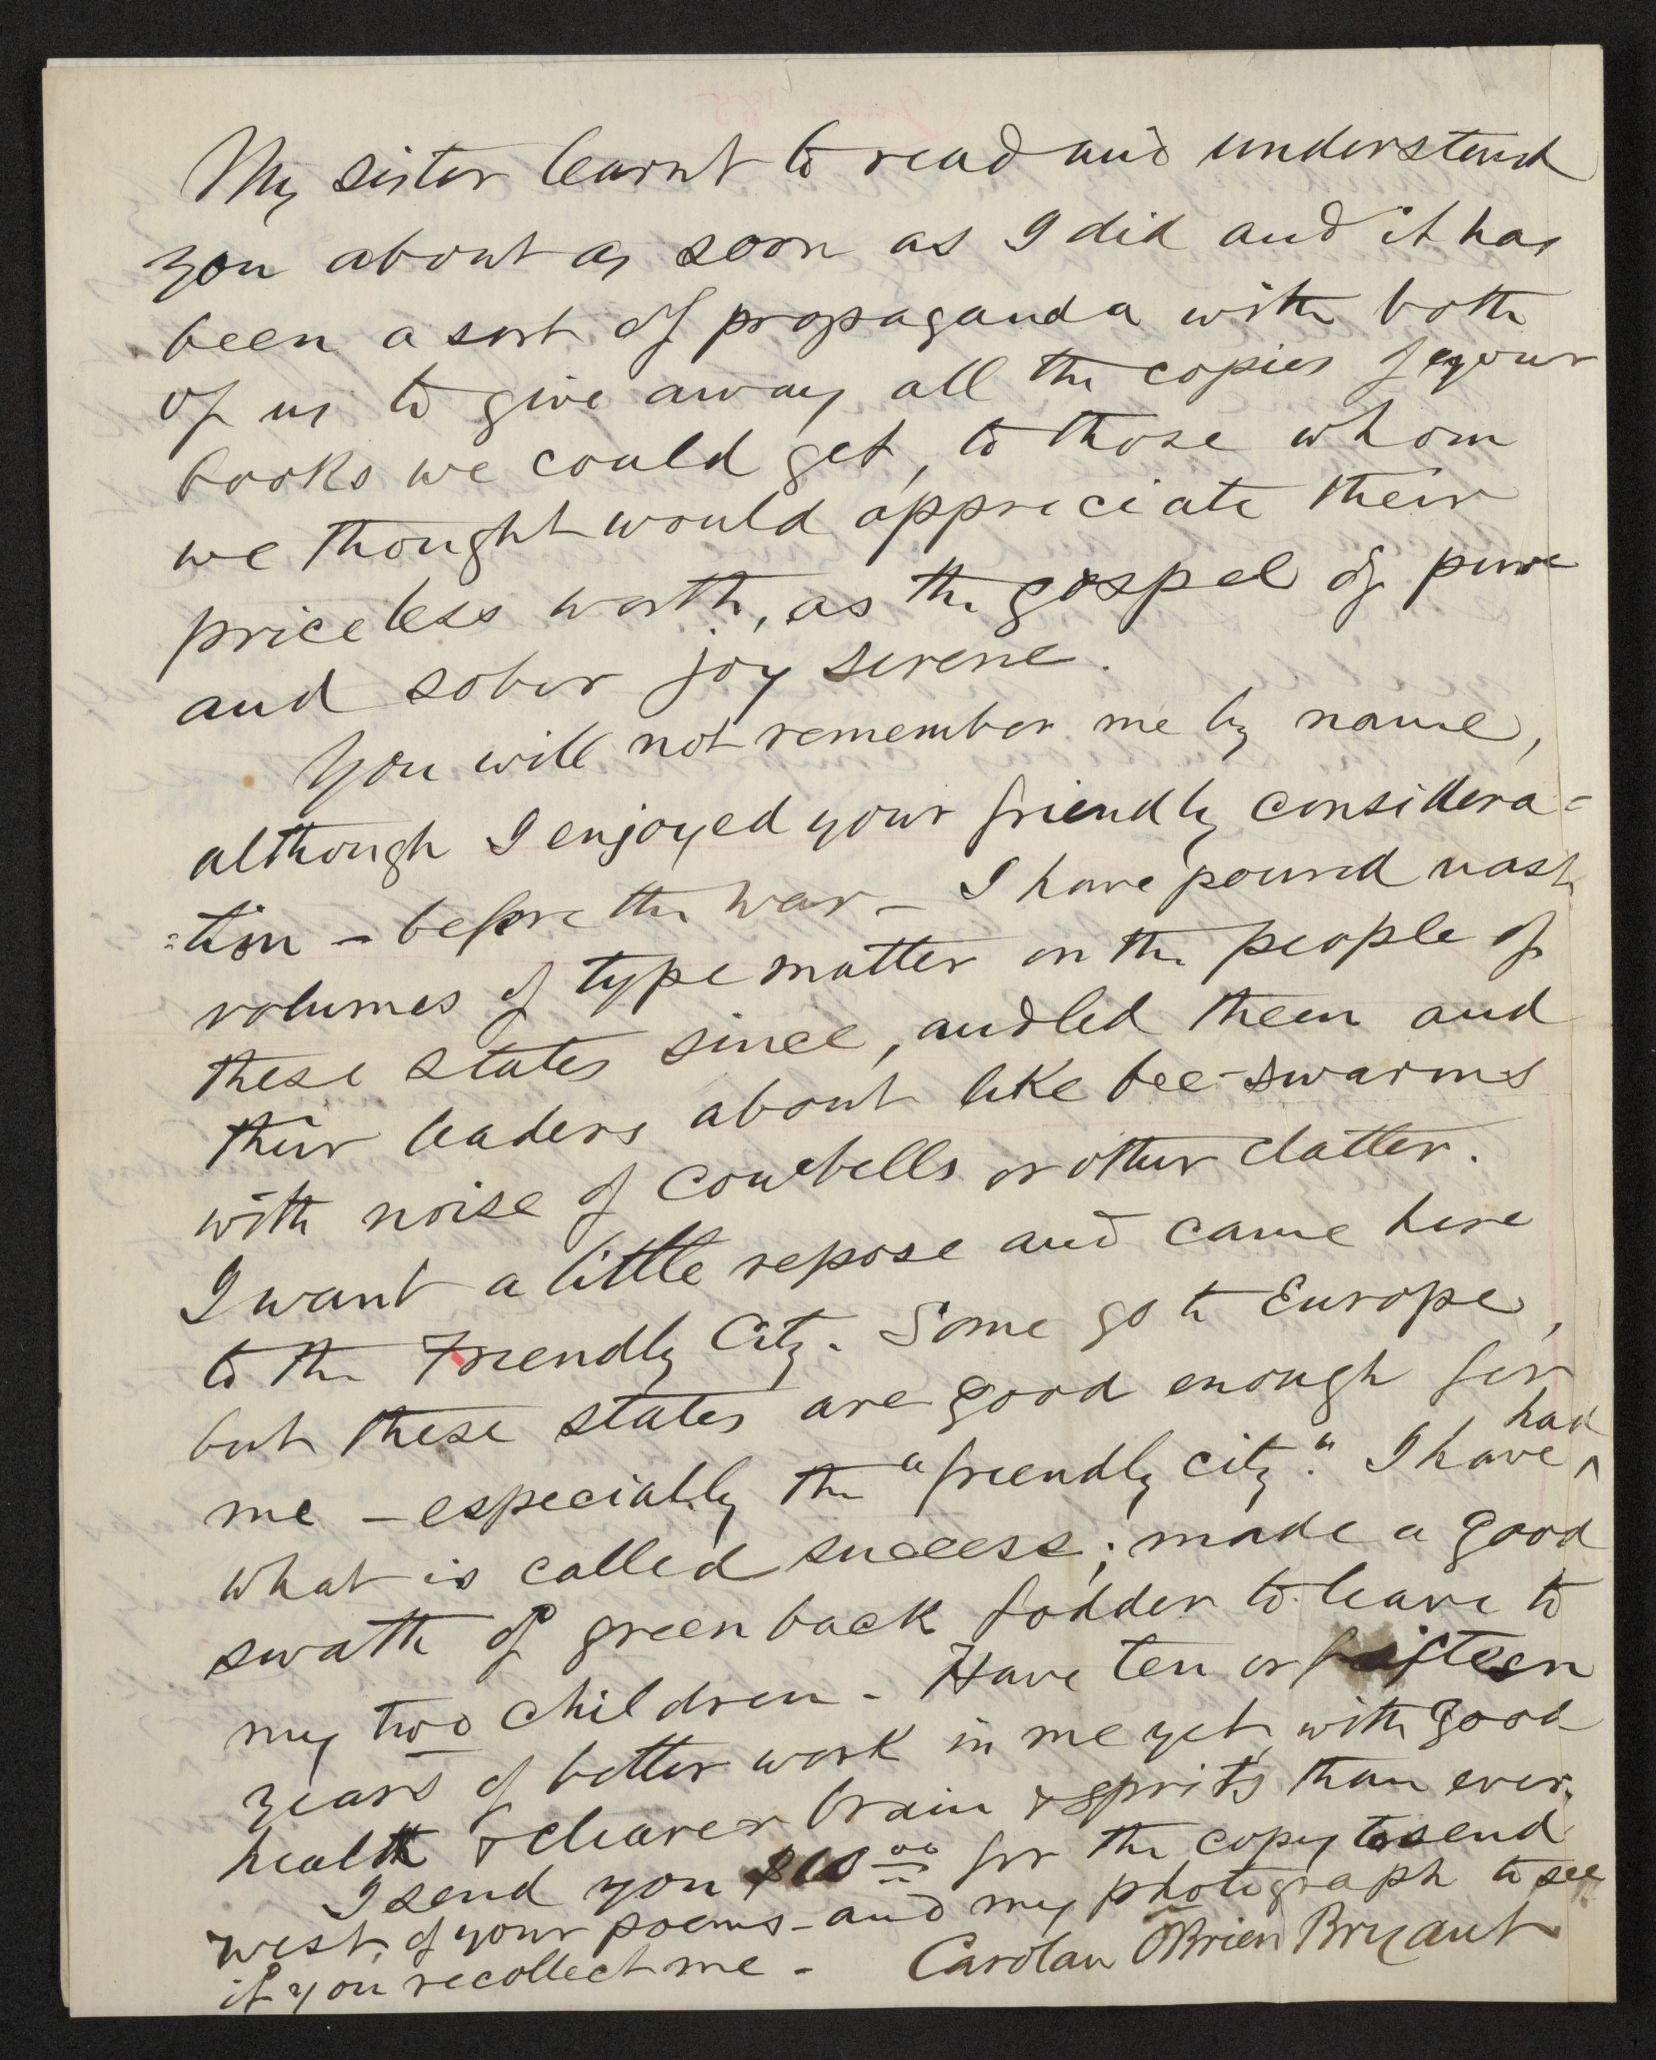 My sister learnt to read and understand
you about as soon as I did and it has
been a sort of propaganda with both
of us to give away all the copies of your
books we could get, to those whom
we thought would appreciate their
priceless worth, as the gospel of pure
and sober joy serene.
You will not remember me by name,
although I enjoyed your friendly considera=
=tion – before the war – I have poured vast
volumes of type matter on the people of
these states since, and led them and
their leaders about like bee-swarms
with noise of cowbells or other clatter.
I want a little repose and came here
to the Friendly City. Some go to Europe,
but these states are good enough for
me – especially the "friendly city." I have ^ had
what is called success; made a good
swath of greenback fodder to leave to
my two children – Have ten or fifteen
years of better work in me yet, with good
health & clearer brain & sprits than ever.
I send you for the copy to send
west, of your poems – and my photograph to see
if you recollect me – Carolan O'Brien Bryant